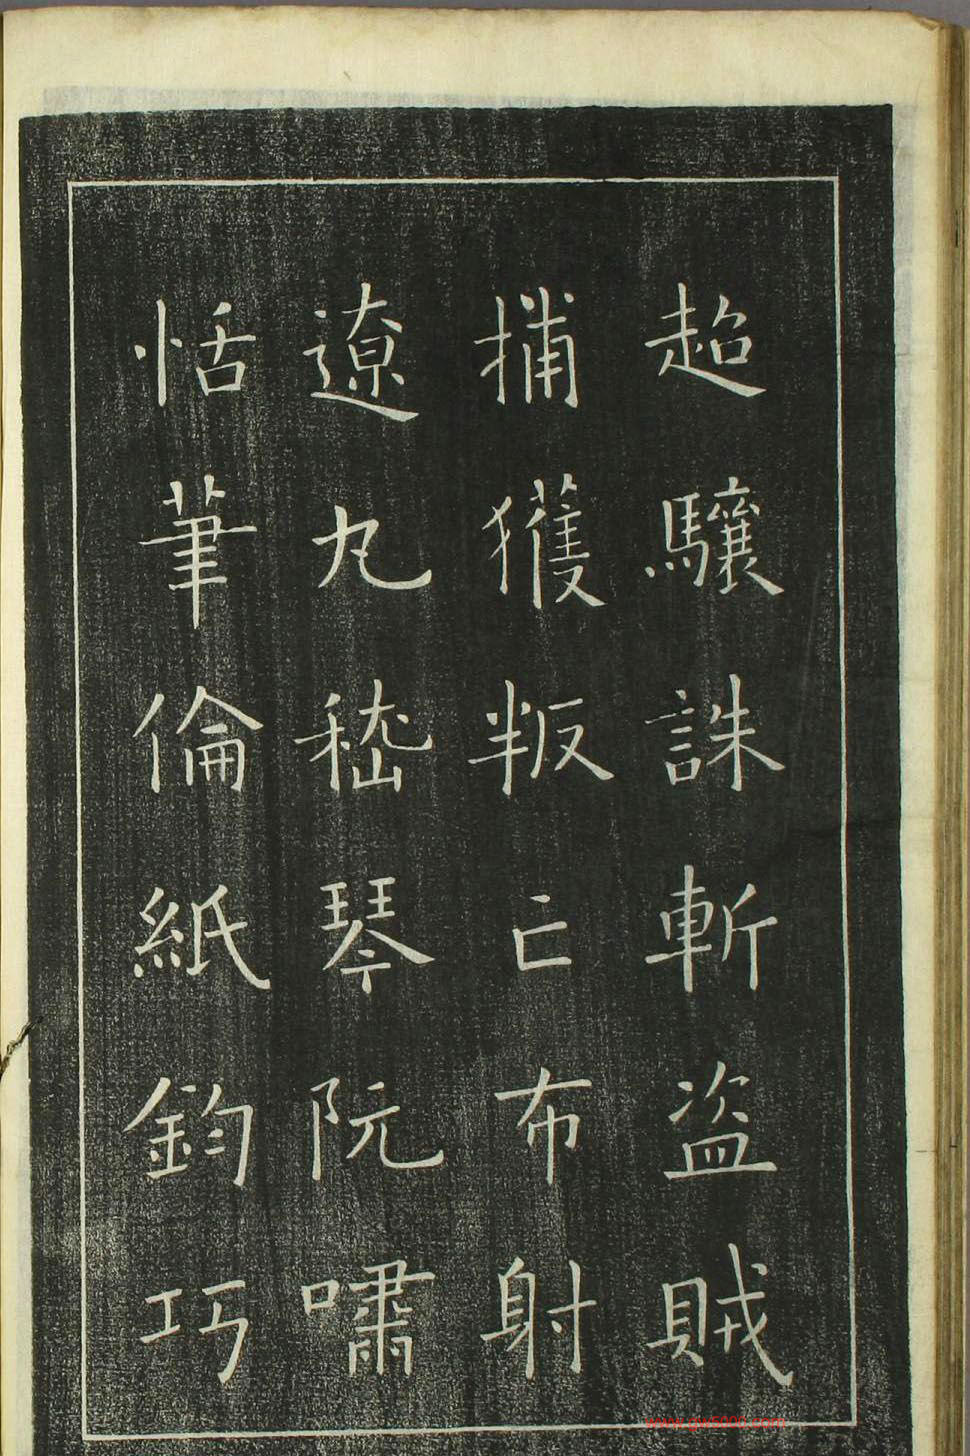 超驤誅斬盜賊
捕獲叛亡布射
遼丸嵇琴阮嘯
恬筆倫紙鈞巧
www.gw5000.com